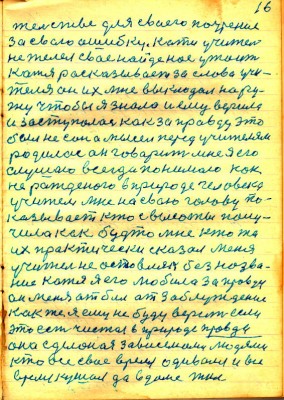 16
тельстве для своего почрение
за свою ошибку. Катя учител
не желея свае найденое утоит
Катя расказывает за слова учи-
теля он их мне выкладал нару-
жу чтобы я знала и ему верила
и заступолас как за правду это
был не сон а мысел перед учителям
родилос он говарит мне я его
слушаю всегда понимаю как
не ражденого в природе человека
учител мне на сваю голову по-
казывает кто с высоты полу-
чила как будто мне кто то
их практически сказал меня
учител не оставлял без назва-
ние катя я его любила за правду
он меня отбил от заблуждение
как же я ему не буду верит если
это ест чистая в природе правда
она сделоная зависимоми людями
кто все свае время одивали и все
время кушал да в доме жил